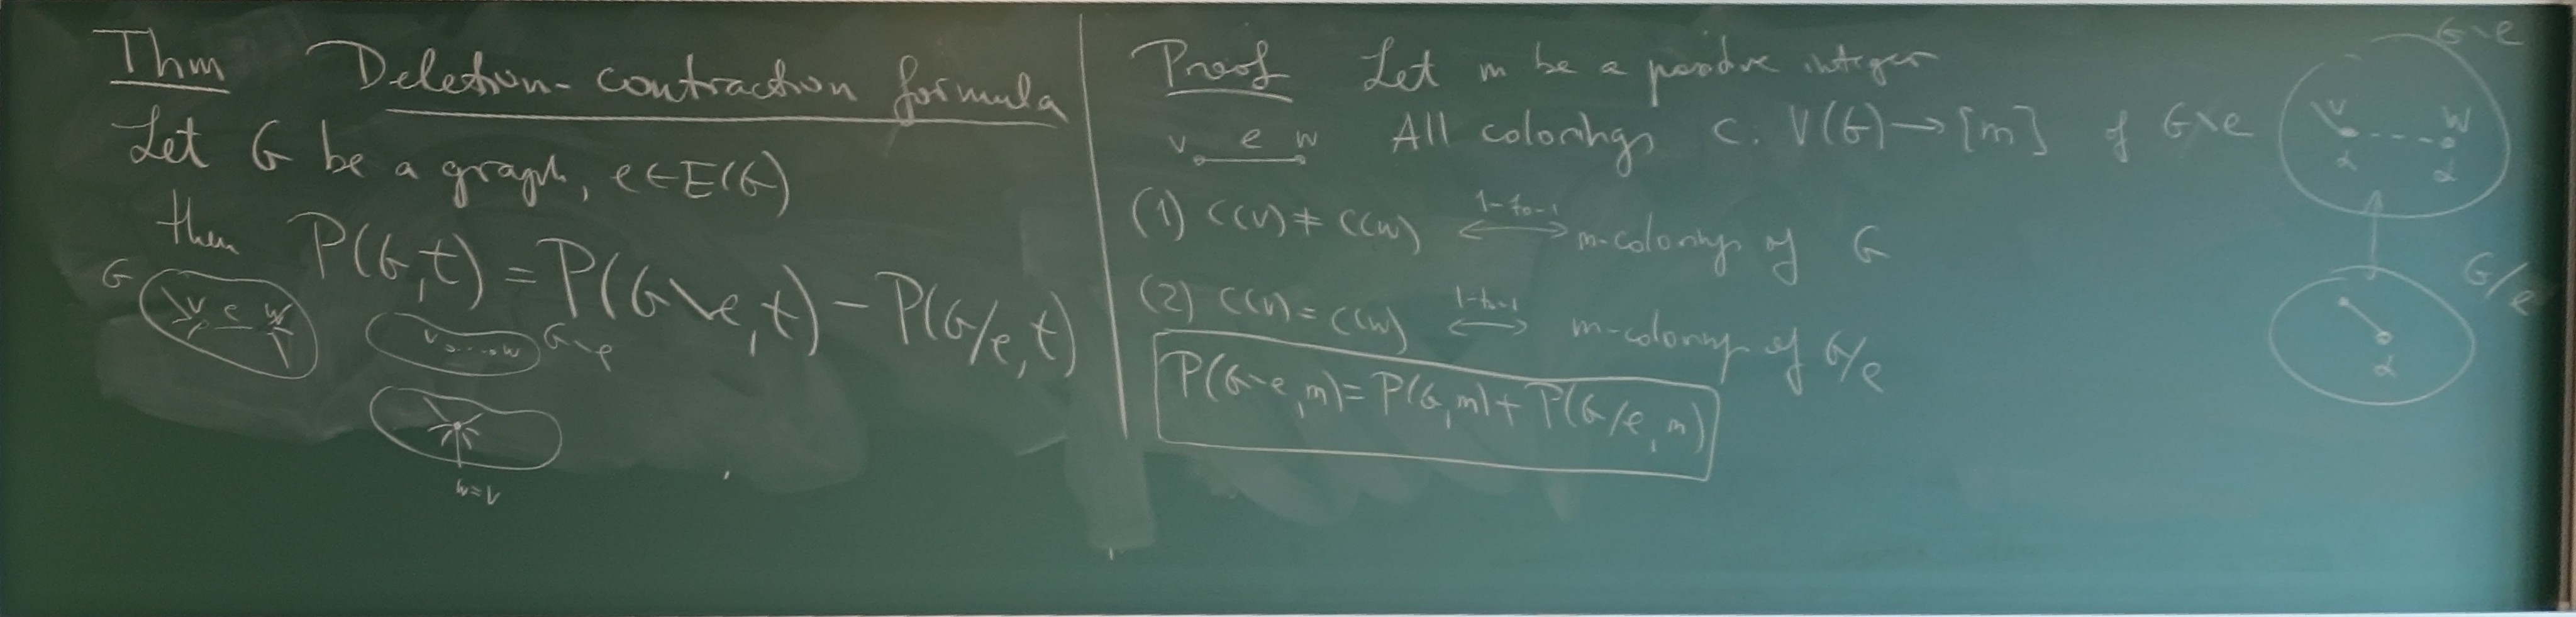 Thm Deletion-contraction formula
Let G be a graph, e∈E(G)
then P(G,t) = P(G\e,t) - P(G/e,t)
G
v e w
v w G\e
w=v
Proof Let m be a positive integer
v e w All colorings C: V(G)→[m] of G\e
(1) C(v)≠C(w) 1-to-1 ⟷ m-colorings of G
(2) C(v)=C(w) 1-to-1 ⟷ m-colorings of G/e
P(G\e,m)=P(G,m)+P(G/e,m)
G\e
v w
α α
G/e
α